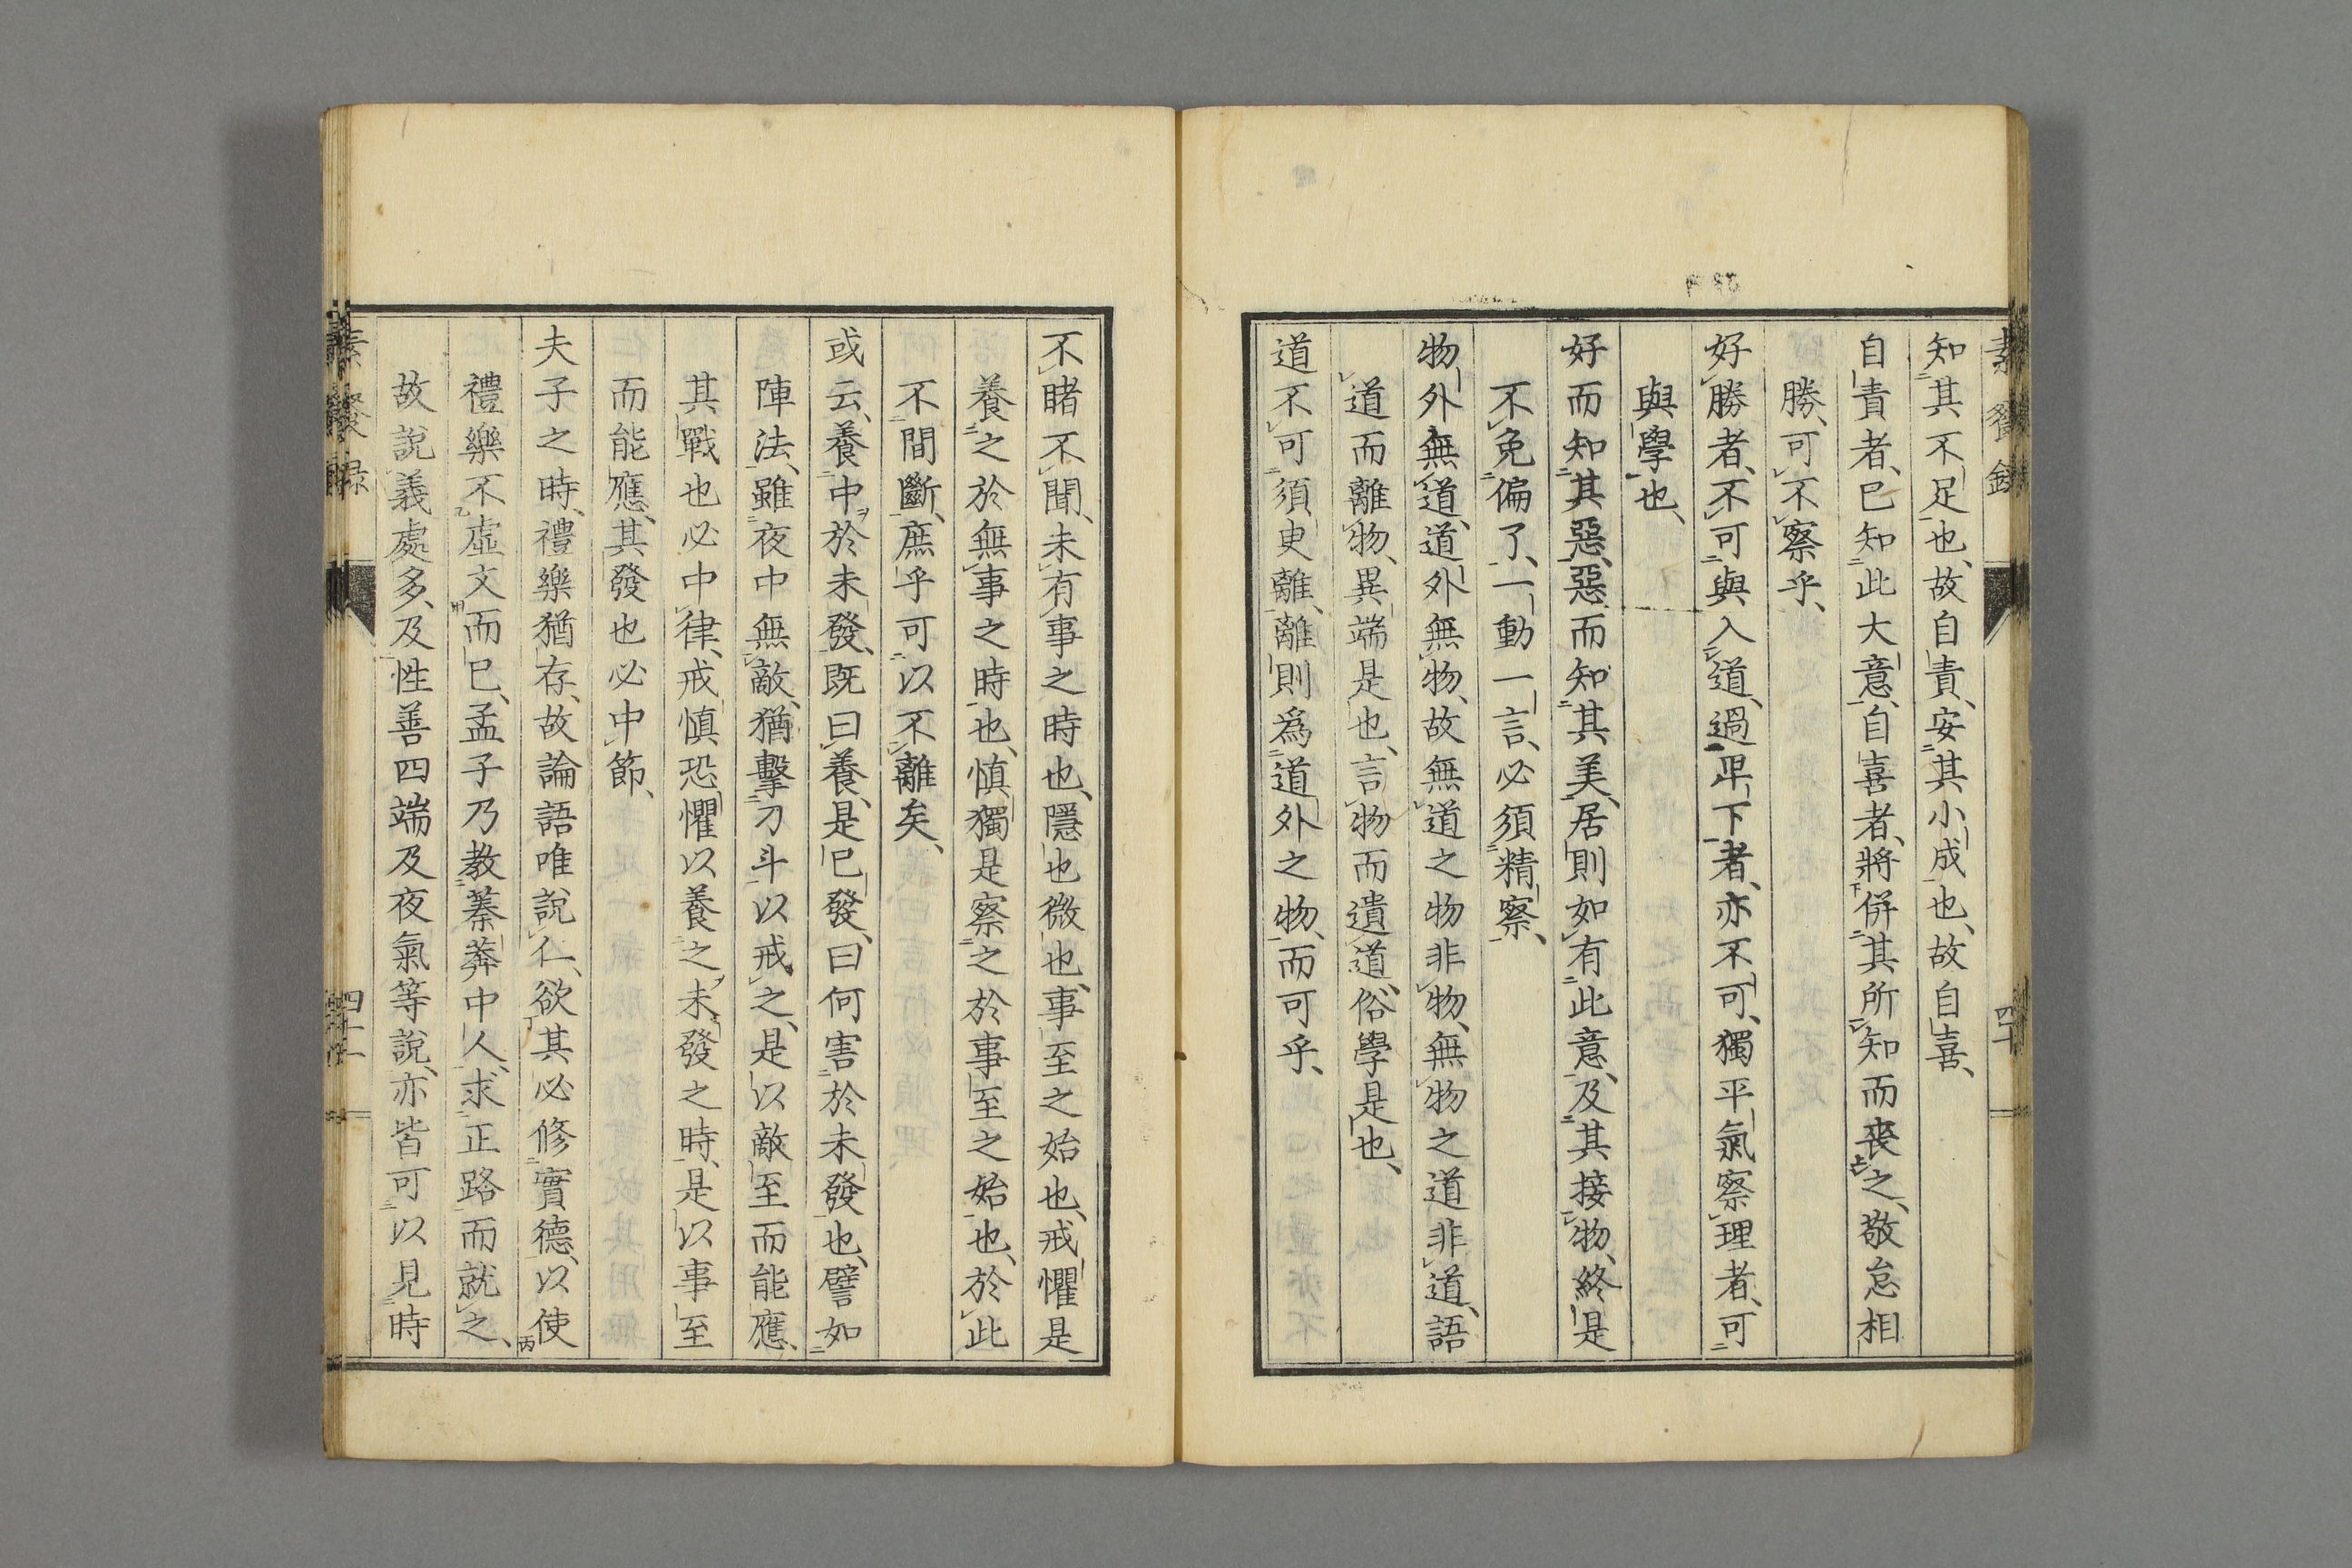 知其不足也、故自責、安其小成也、故自喜、
自責者、已知此大意、自喜者、將併其所知而喪之、敬怠相
勝、可不察乎、
好勝者、不可與入道、過卑下者、亦不可、獨平氣察理者、可
與學也、
好而知其惡、惡而知其美、居則如有此意、及其接物、終是
不免偏了、一動一言、必須精察、
物外無道、道外無物、故無道之物非物、無物之道非道、語
道而離物、異端是也、言物而遺道、俗學是也、
道不可須臾離、離則爲道外之物、而可乎、
四十
不睹不聞、未有事之時也、隱也微也、事至之始也、戒懼是
養之於無事之時也、愼獨是察之於事至之始也、於此
不間斷、庶乎可以不離矣、
或云、養中於未發、既曰養、是已發、曰何害於未發也、譬如
陣法、雖夜中無敵、猶擊刁斗以戒之、是以敵至而能應、
其戰也必中律、戒愼恐懼以養之未發之時、是以事至
而能應、其發也必中節、
夫子之時、禮樂猶存、故論語唯說仁、欲其必修實德、以使
禮樂不虛文而已、孟子乃教蓁莽中人、求正路而就之、
故說義處多、及性善四端及夜氣等說、亦皆可以見時
四十一